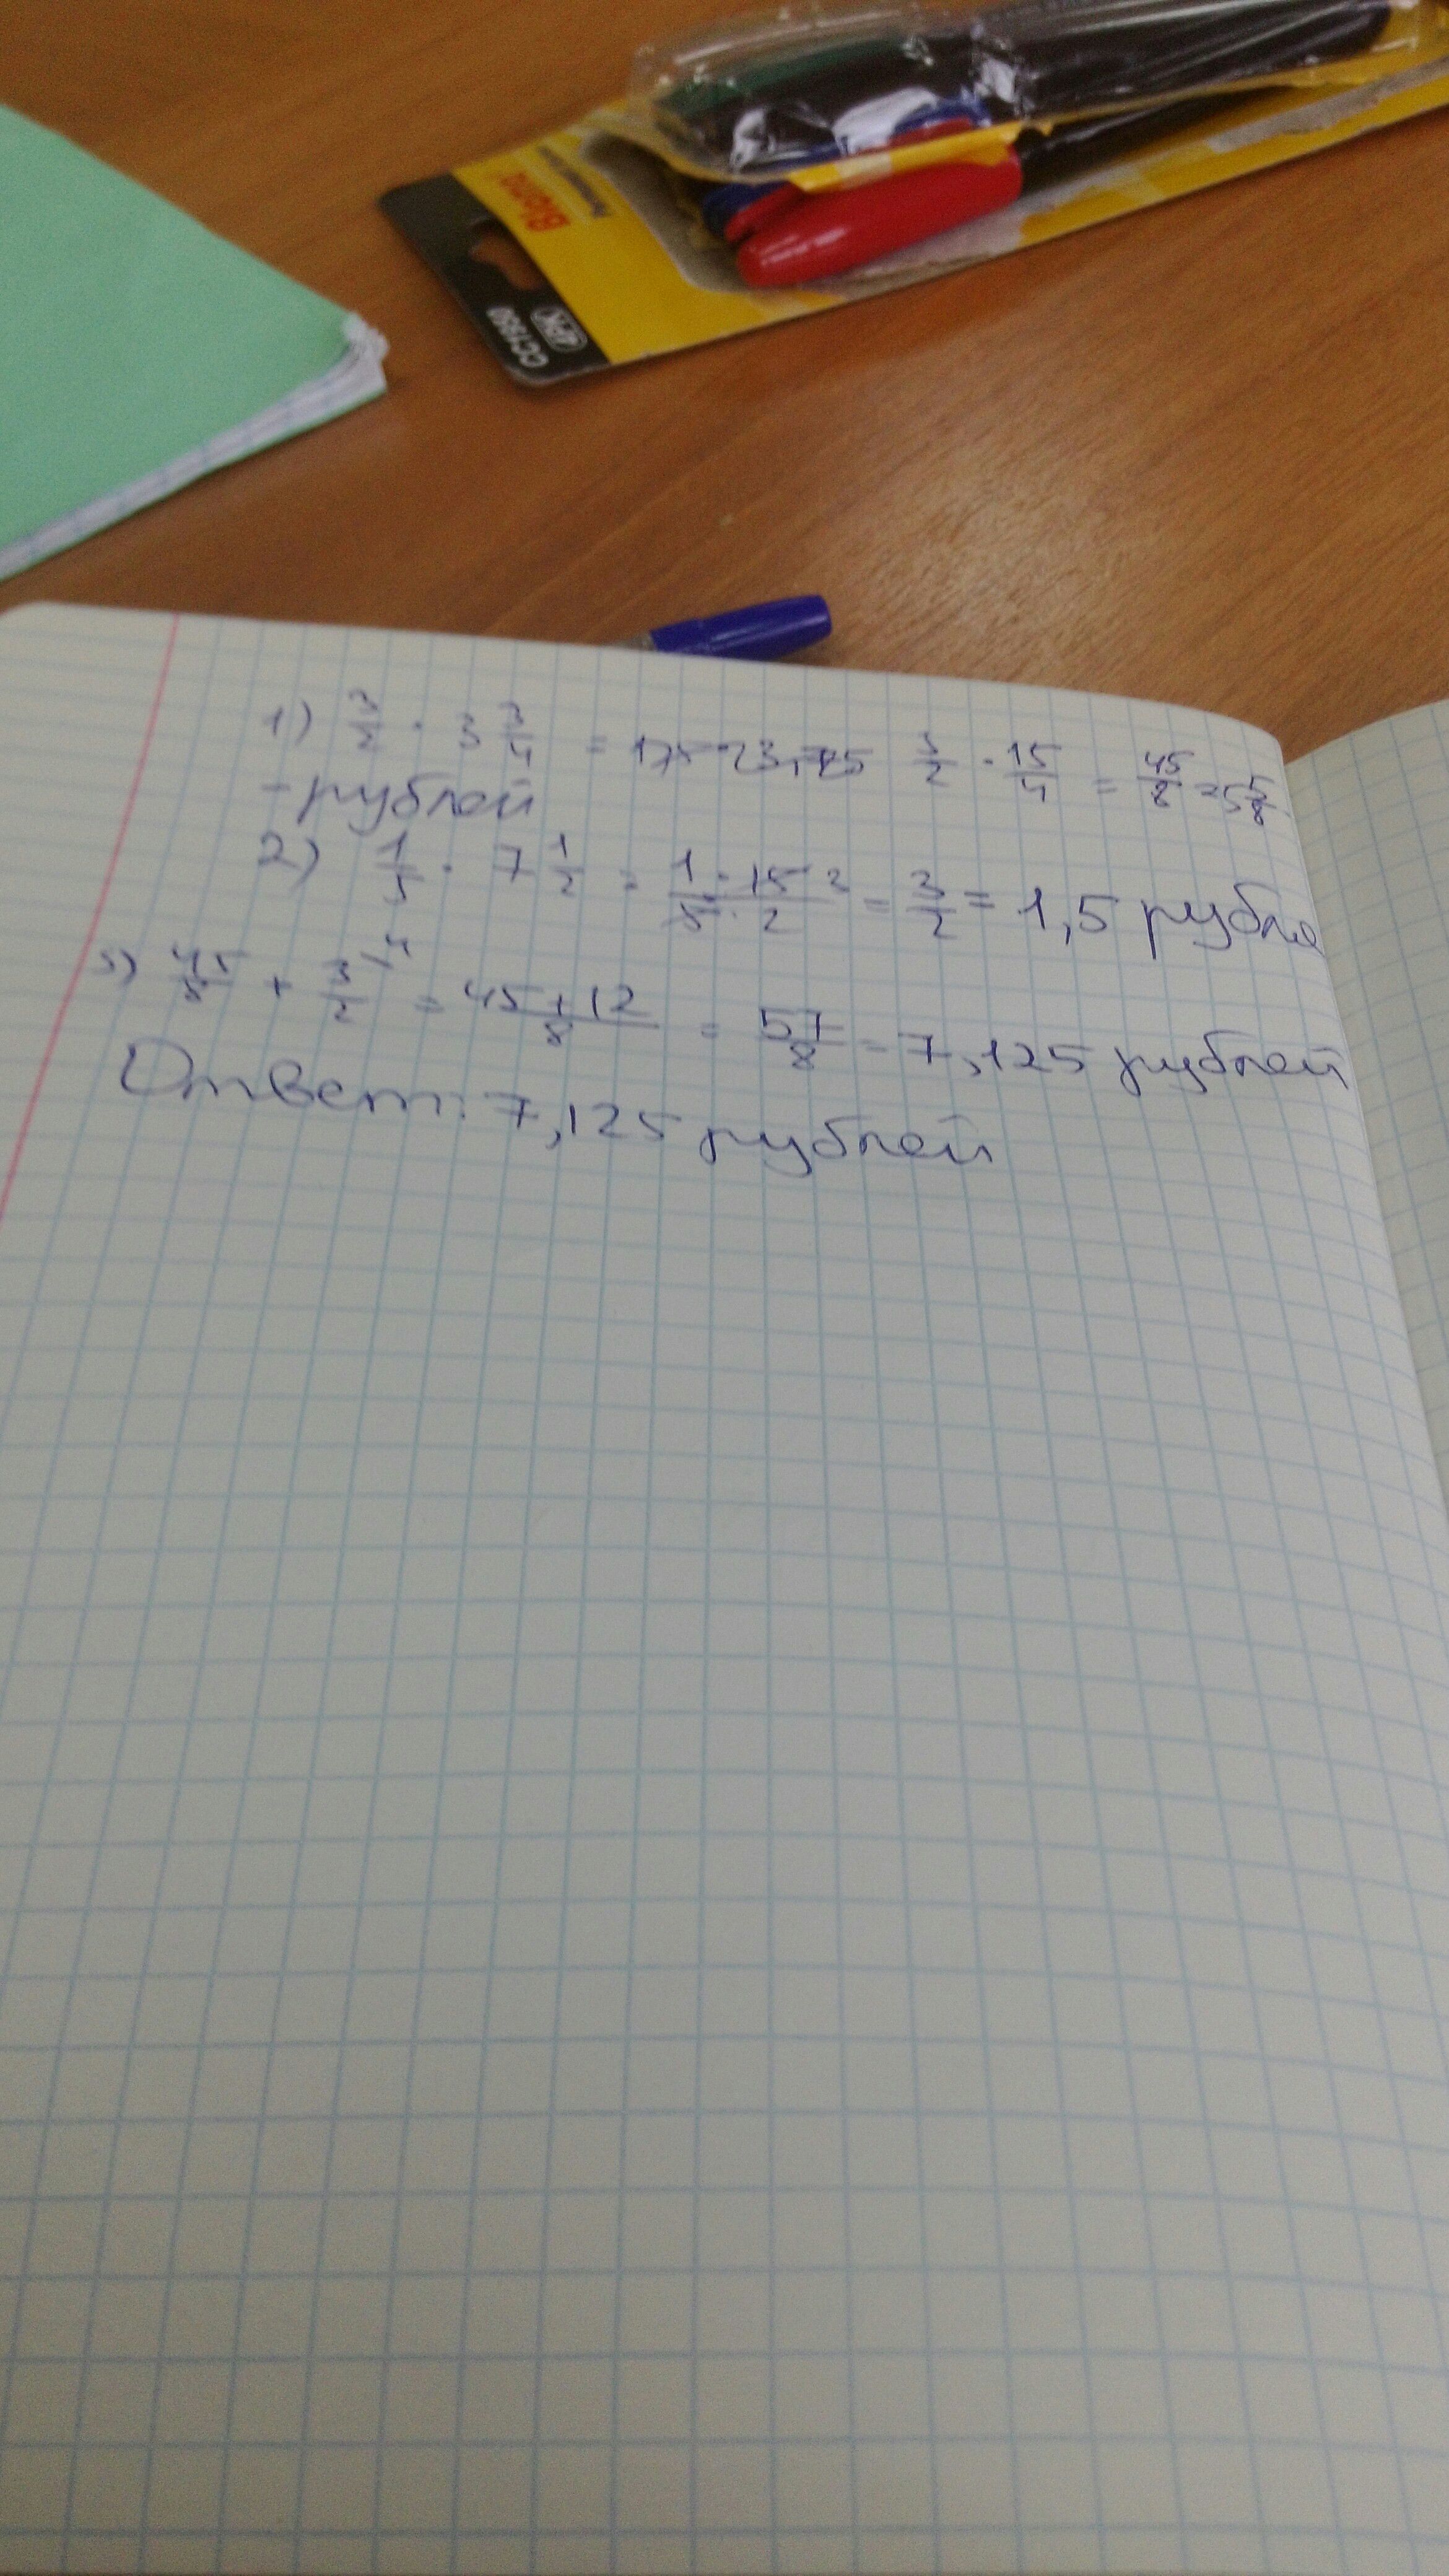 Bloma
CC1950
4PK
1) 3/2 · 3 3/4 = 3/2 · 15/4 = 45/8 = 5 5/8
- рублей
2) 1/5 · 7 1/2 = 1 · 15 3 / 5 · 2 = 3/2 = 1,5 рубля
3) 45/8 + 3/2 \4 = 45 + 12 / 8 = 57/8 = 7,125 рублей
Ответ: 7,125 рублей